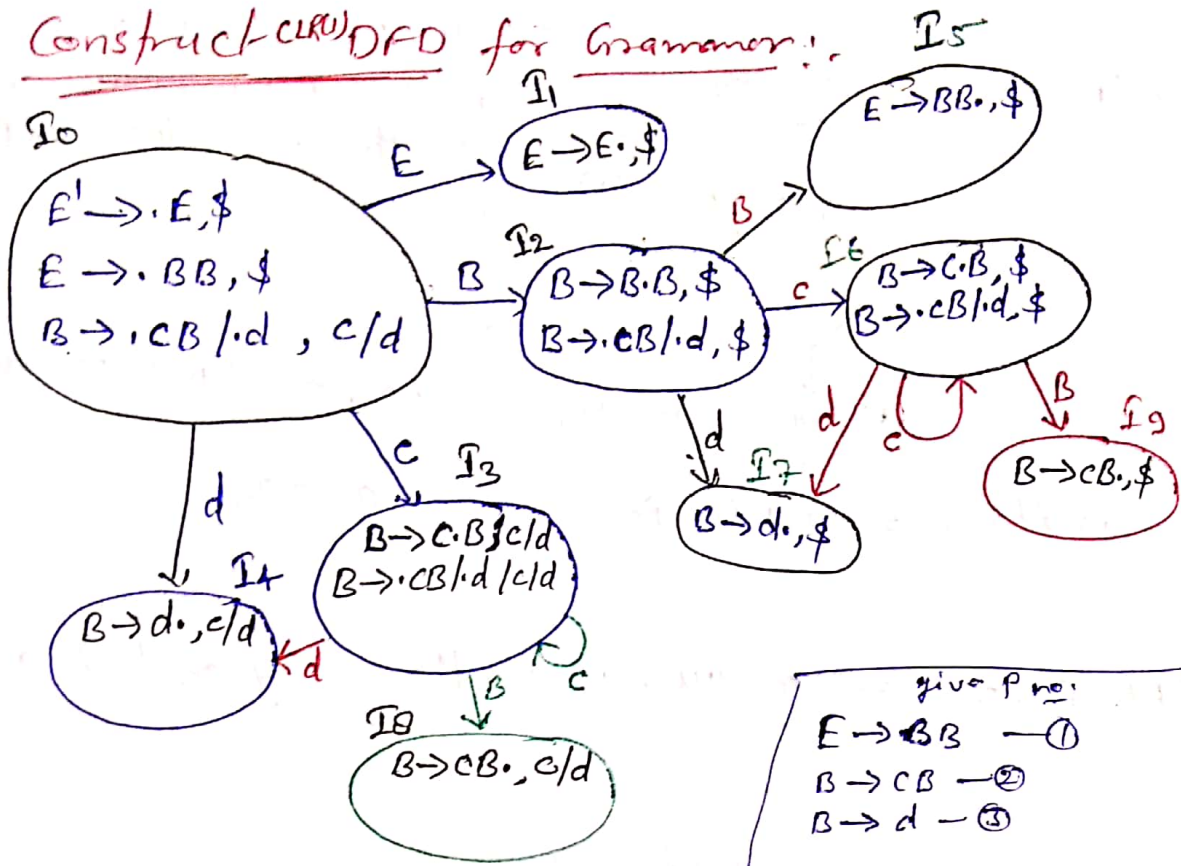 Construct CLR(1) DFD for Grammer:.
I0
E' → .E, $
E → .BB, $
B → .CB / .d , c/d
E
I1
E → E., $
B
I2
B → B.B, $
B → .CB/.d, $
B
I5
E → BB., $
c
I6
B → C.B, $
B → .CB/.d, $
d
d
c
B
I9
B → CB., $
I7
B → d., $
d
c
I3
B → C.B, c/d
B → .CB/.d / c/d
I4
B → d., c/d
d
B
c
I8
B → CB., c/d
give P no:
E → BB — ①
B → CB — ②
B → d — ③